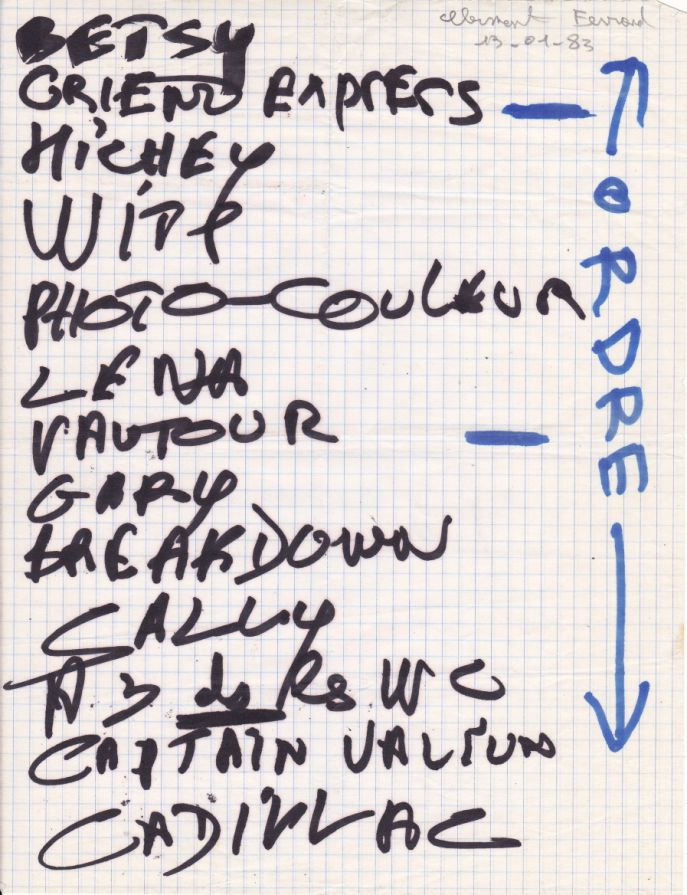 Clermont Ferrand
13-01-83
BETSY
ORIENT EXPRESS
MiCKEY
PHOTO-COULEUR
LENA
VAUTOUR
GARY
BREAKDOWN
SALLY
A 3 ds les WC
CAPTAIN VALIUM
CADiLLAC
ORDRE